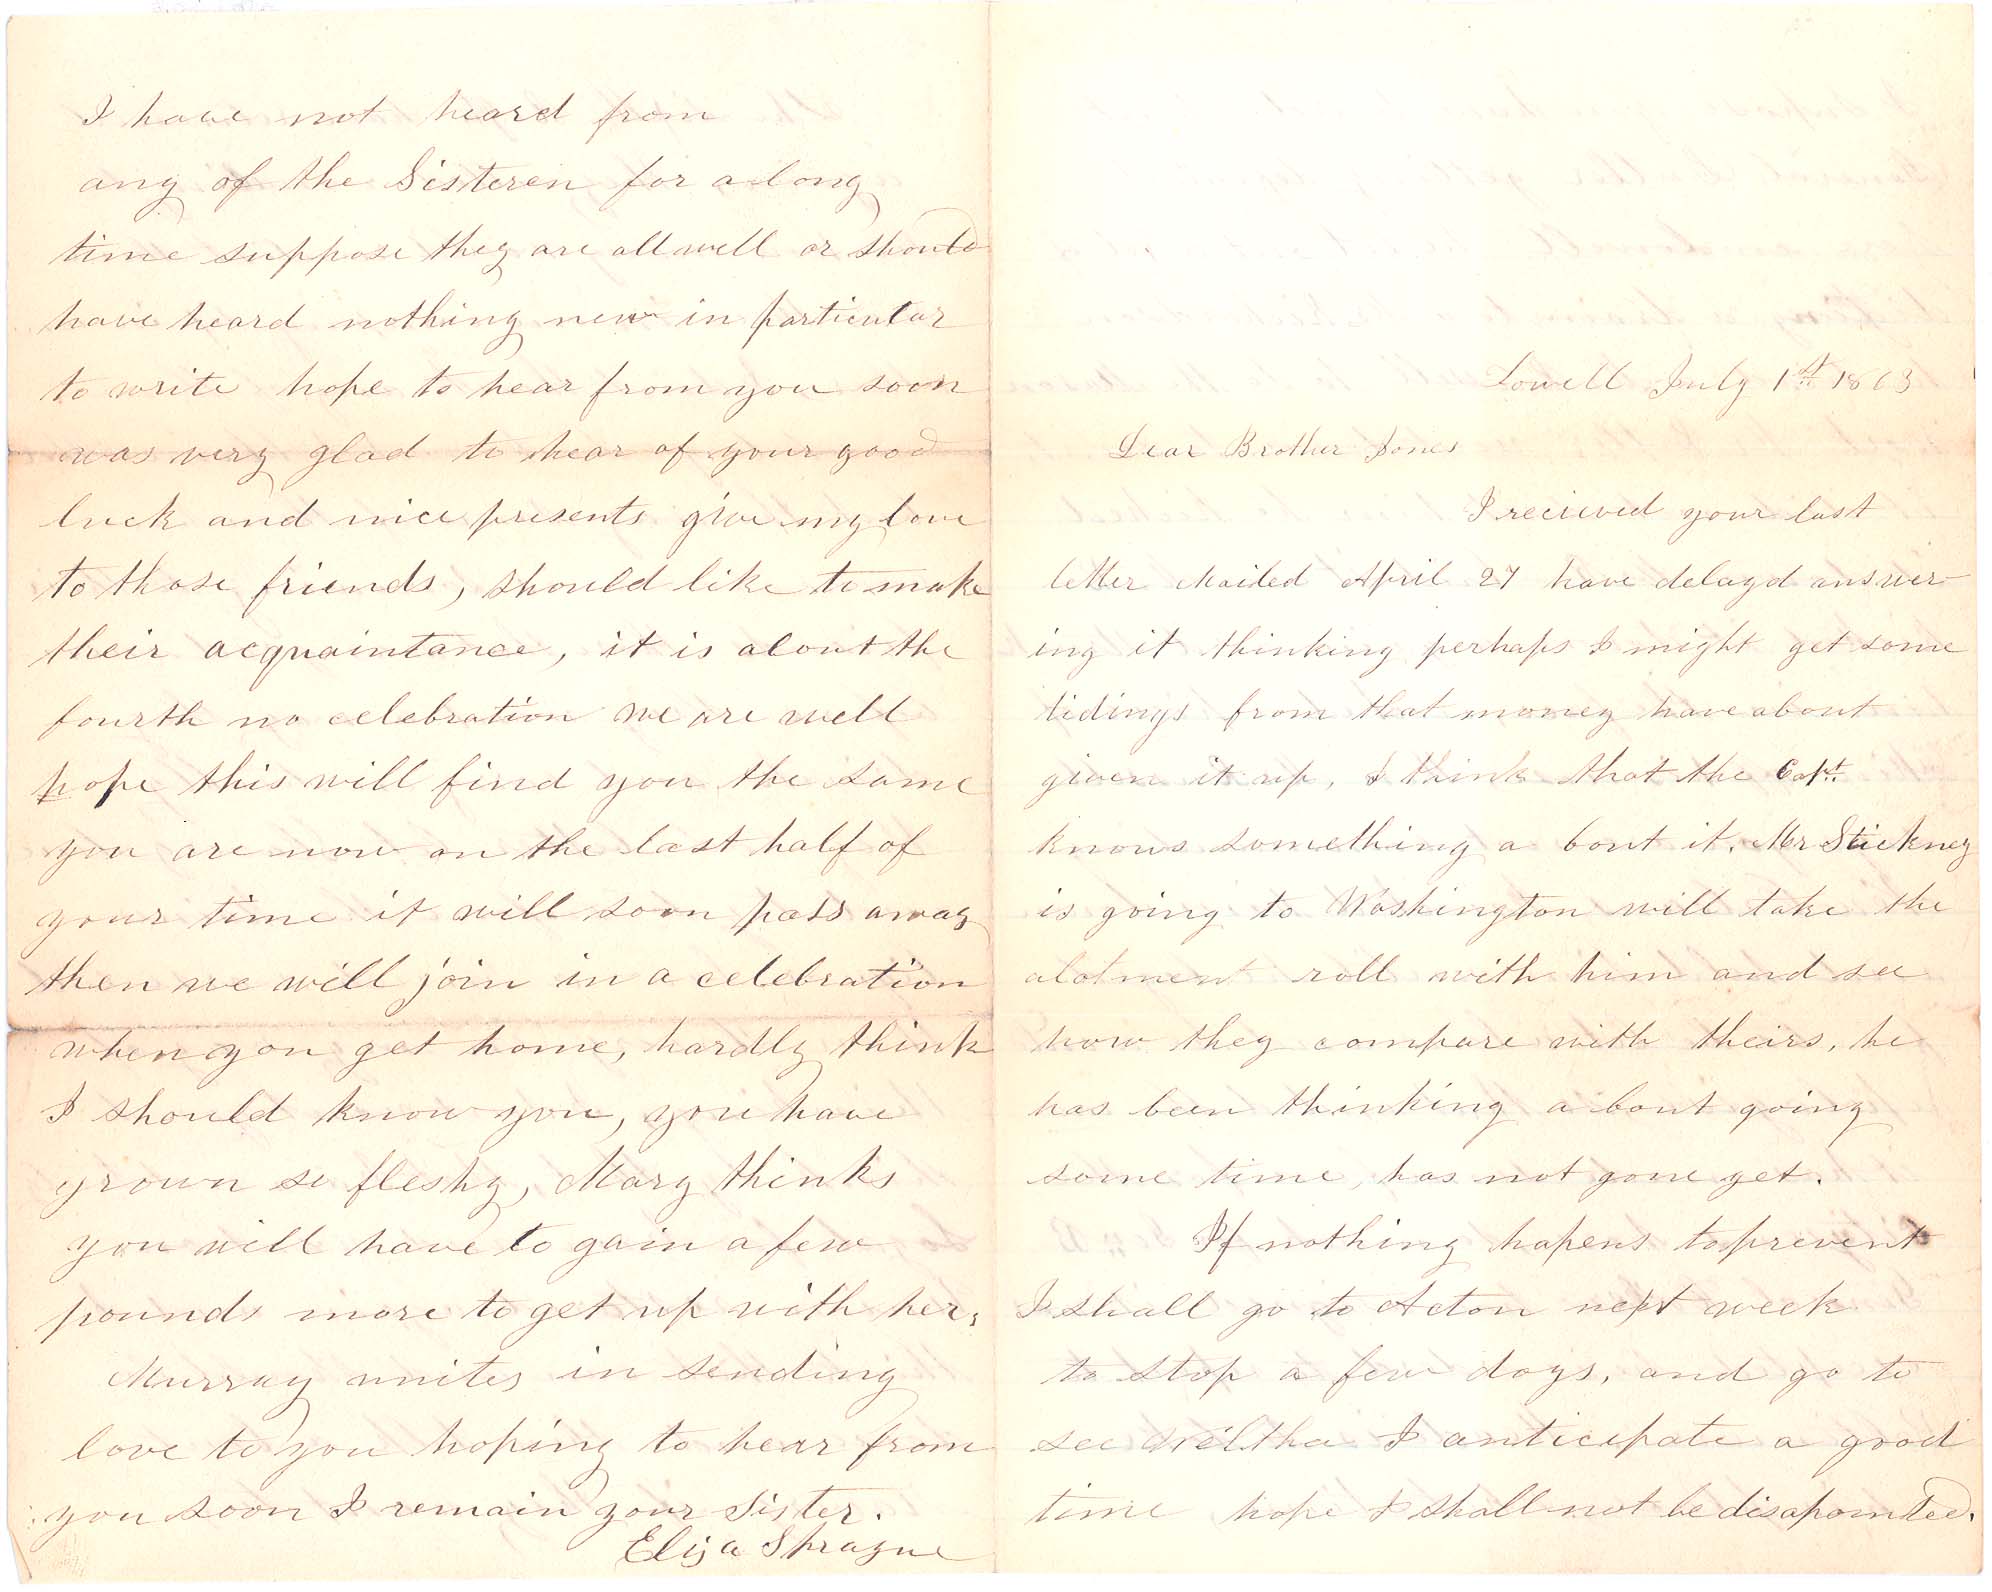 Lowell July 1st 1863
Dear Brother Jones
I recieved your last
letter Mailed April 27 have delayd answer-
ing it thinking perhaps I might get some
tidings from that money have about
given it up, I think that the Capt.
knows something a bout it. Mr Stickney
is going to Washington will take the
alotment roll with him and see
how they compare with theirs, he
has been thinking a bout going
some time, has not gone yet.
If nothing hapens to prevent
I shall go to Acton next week
to stop a few days, and go to
see I anticipate a good
time hope I shall not be disapointed.
I have not heard from
any of the Sisteren for a long
time suppose they are all well or should
have heard nothing new in particular
to write hope to hear from you soon
was very glad to hear of your good
luck and nice presents give my love
to those friends, should like to make
their acquaintance, it is about the
fourth no celebration we are well
hope this will find you the same
you are now on the last half of
your time it will soon pass away
then we will join in a celebration
when you get home, hardly think
I should know you, you have
grown so fleshy, Mary thinks
you will have to gain a few
pounds more to get up with her,
Murray unites in sending
love to you hoping to hear from
you soon I remain your Sister.
Eliza Sprague